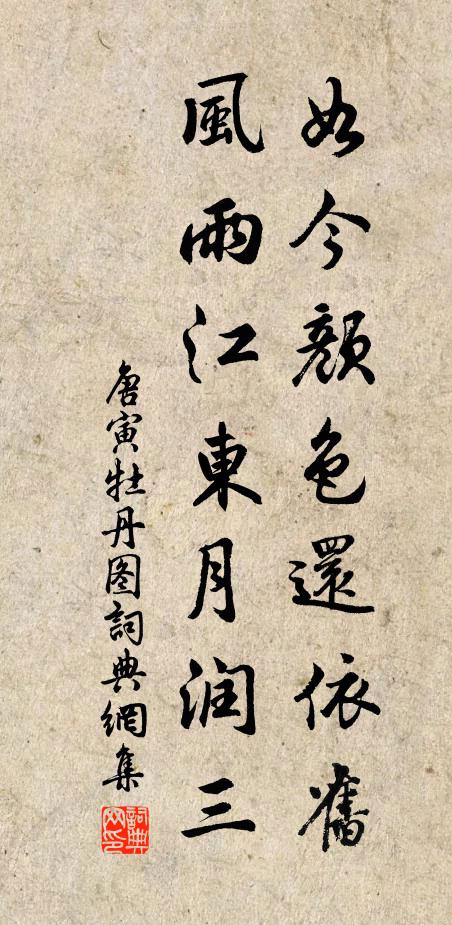 如今顏色還依舊
風雨江東月润三
唐寅牡丹图詞典網集
詞典網印